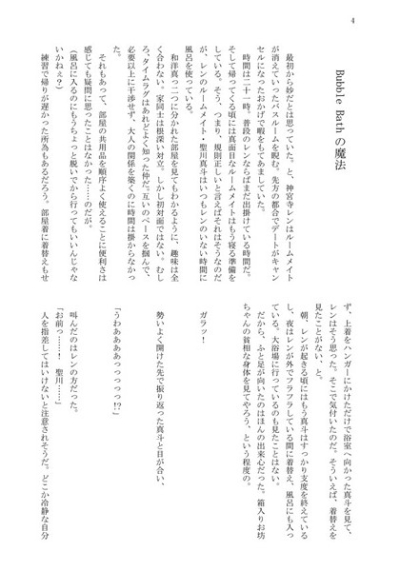 4
Bubble Bath の魔法
最初から妙だとは思っていた。と、神宮寺レンはルームメイト
が消えていったバスルームを睨む。先方の都合でデートがキャン
セルになったおかげで暇をもてあましていた。
時間は二十一時、普段のレンならばまだ出掛けている時間だ。
そして帰ってくる頃には真面目なルームメイトはもう寝る準備を
している。そう、つまり、規則正しいと言えばそれはそうなのだ
が、レンのルームメイト・聖川真斗はいつもレンのいない時間に
風呂を使っている。
和洋真っ二つに分かれた部屋を見てもわかるように、趣味は全
く合わない。家同士は根深い対立。しかし初対面ではない。むし
ろ、タイムラグはあれどよく知った仲だ。互いのペースを掴んで、
必要以上に干渉せず、大人の関係を築くのに時間は掛からなかっ
た。
それもあって、部屋の共用品を順序よく使えることに便利さは
感じても疑問に思ったことはなかった……のだが。
（風呂に入るのにもうちょっと脱いでから行ってもいいんじゃな
いかねぇ？）
練習で帰りが遅かった所為もあるだろう。部屋着に着替えもせ
ず、上着をハンガーにかけただけで浴室へ向かった真斗を見て、
レンはそう思った。そこで気付いたのだ。そういえば、着替えを
見たことがない、と。
朝、レンが起きる頃にはもう真斗はすっかり支度を終えている
し、夜はレンが外でフラフラしている間に着替え、風呂にも入っ
ている。大浴場に行っているのも見たことはない。
だから、ふと足が向いたのはほんの出来心だった。箱入りお坊
ちゃんの貧相な身体を見てやろう、という程度の。
ガラッ！
勢いよく開けた先で振り返った真斗と目が合い、
「うわああああっっっっっ!?」
叫んだのはレンの方だった。
「お前っ……！　聖川……っ」
人を指差してはいけないと注意されそうだ。どこか冷静な自分